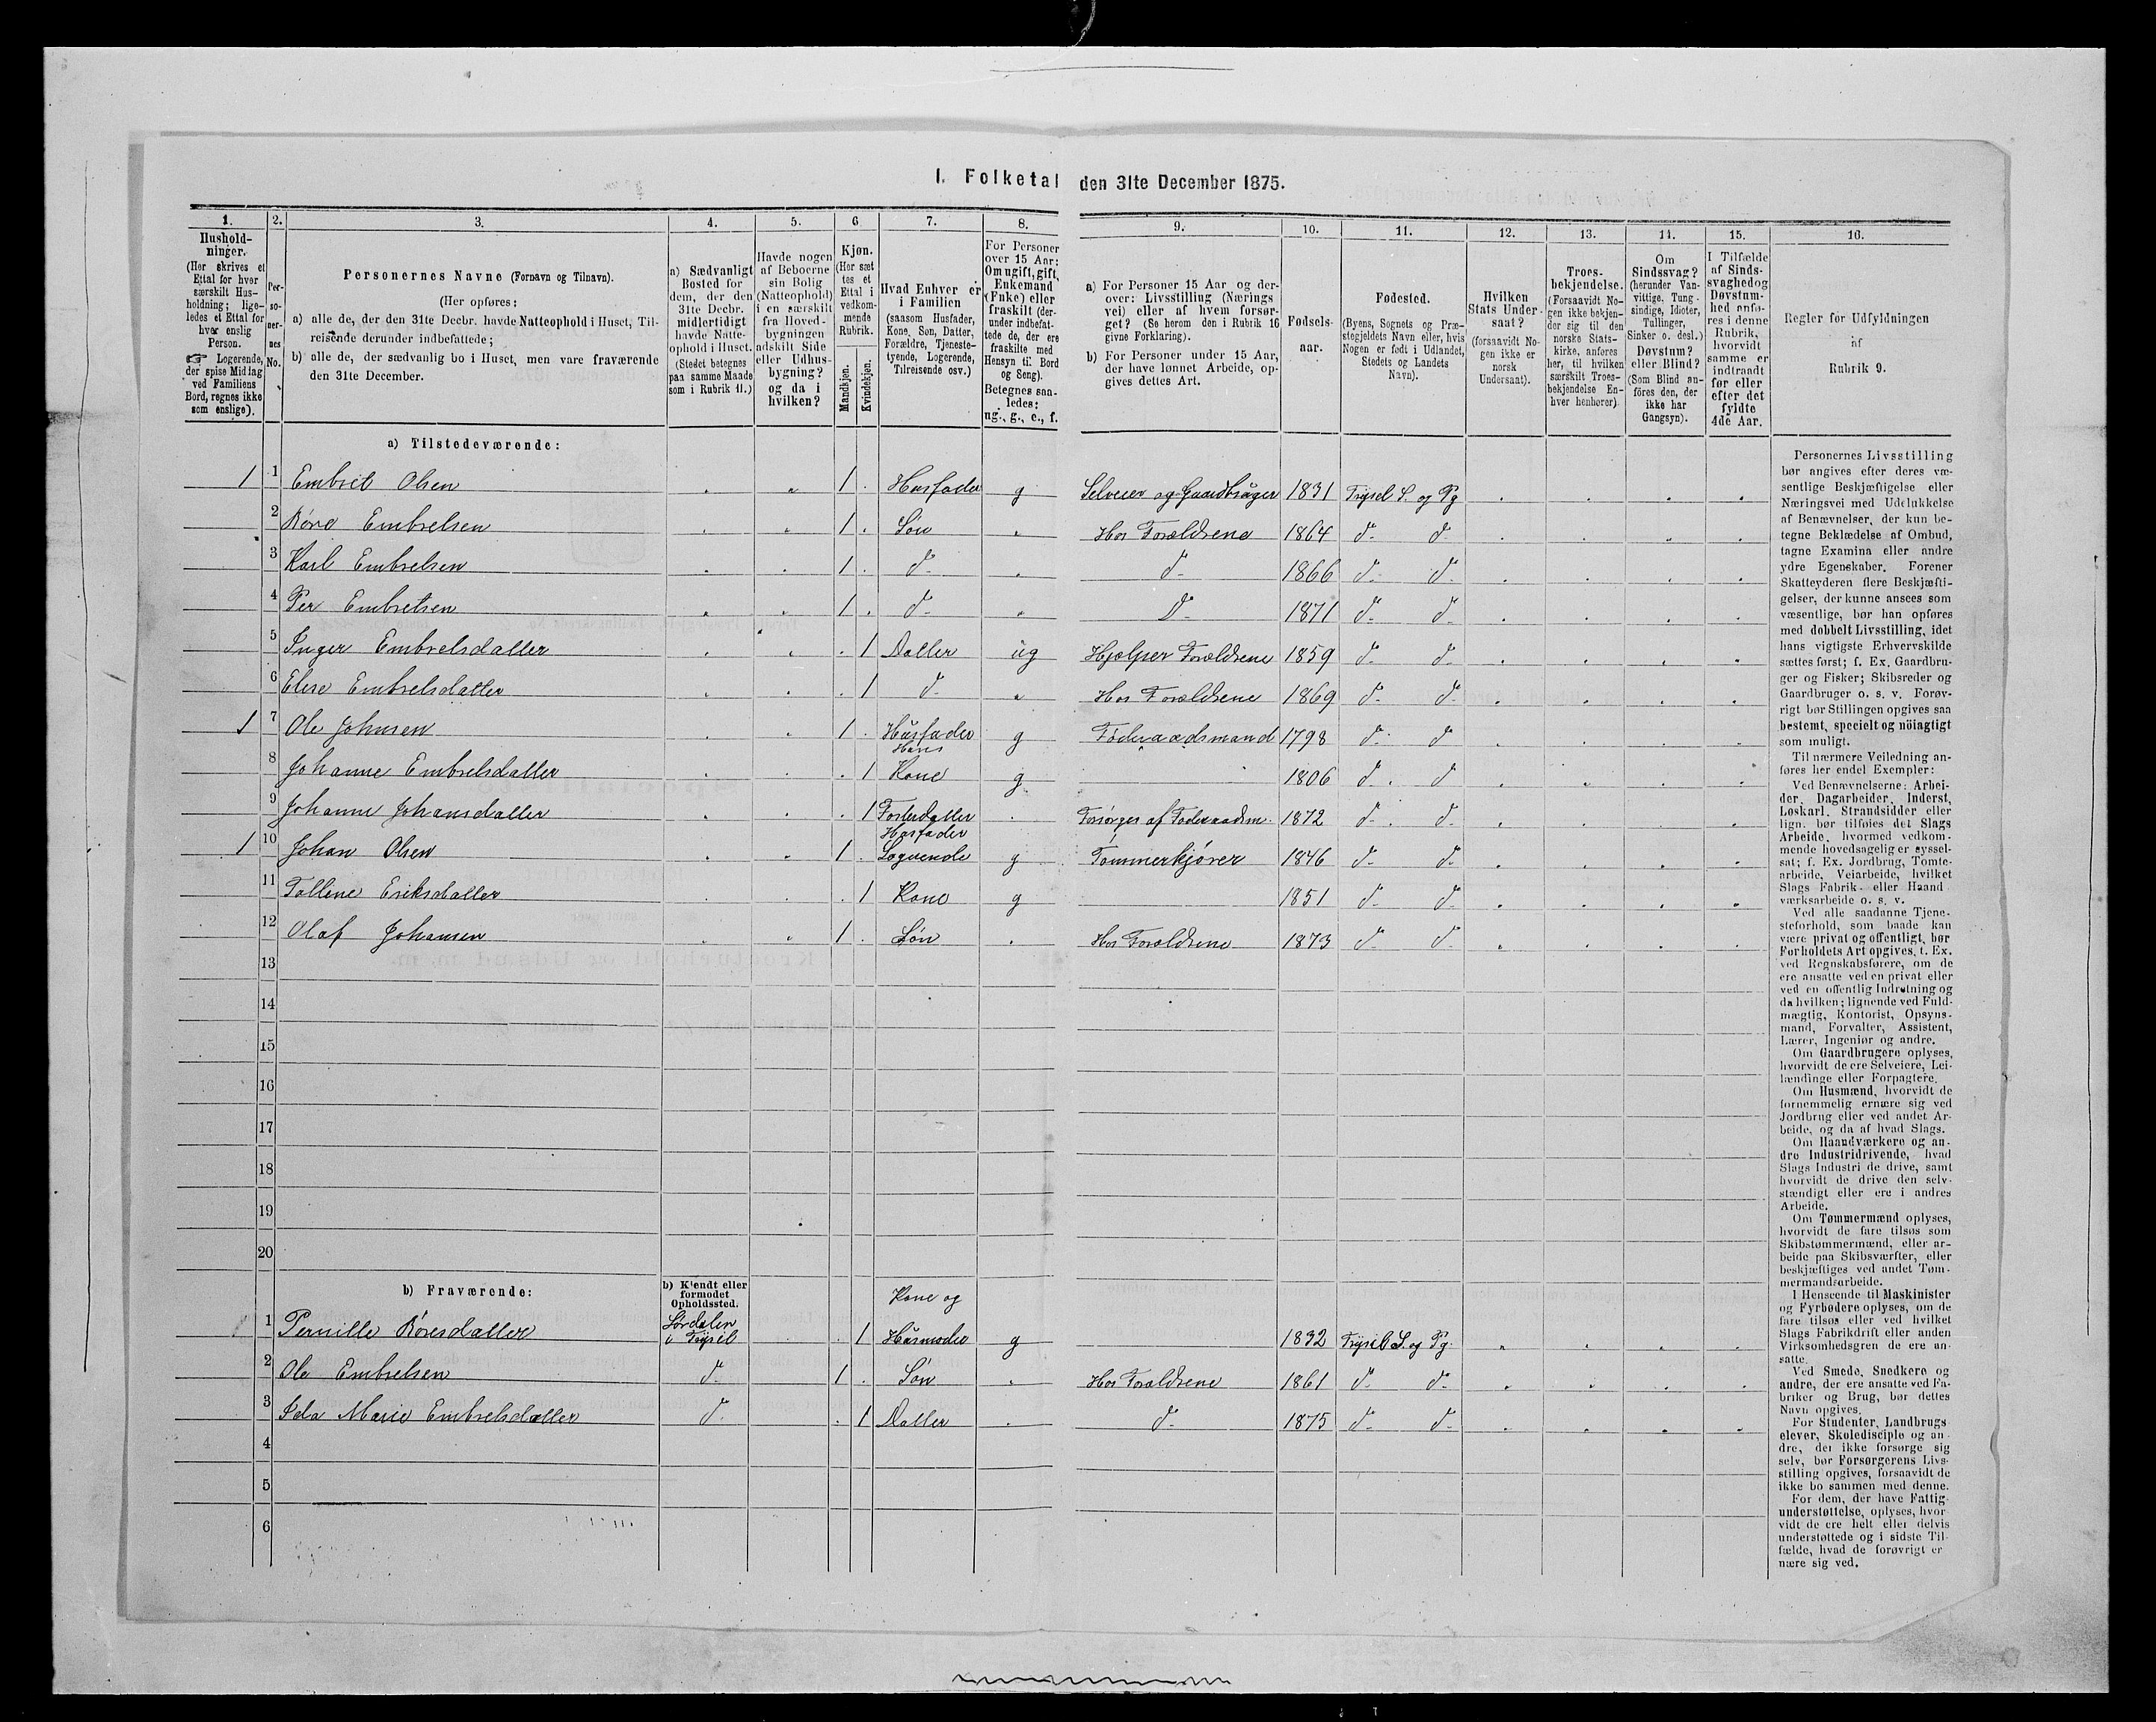 I. Folketal den 31te December 1875.
1. 2. 3. 4. 5. 6. 7. 8. 9. 10. 11. 12. 13. 14. 15. 16.
Husholdninger.
(Her skrives et
Ettal for hver
særskilt Hus-
holdning; lige-
ledes et Ettal for
hver enslig
Person.
Logerende,
der spise Middag
ved Familiens
Bord, regnes ikke
som enslige).
Per-
so-
ner-
nes
No.
Personernes Navne (Fornavn og Tilnavn).
(Her opføres:
a) alle de, der den 31te Decbr. havde Natteophold i Huset, Til-
reisende derunder indbefattede;
b) alle de, der sædvanlig bo i Huset, men vare fraværende
den 31te December.
a) Sædvanligt
Bosted for
dem, der den
31te Decbr.
midlertidigt
havde Natte-
ophold i Huset.
(Stedet betegnes
paa samme Maade
som i Rubrik 11.)
Havde nogen
af Beboerne
sin Bolig
(Natteophold)
i en særskilt
fra Hoved-
bygningen
adskilt Side
eller Udhus-
bygning?
og da i
hvilken?
Kjøn.
(Her sæt
tes et
Ettal i
vedkom-
mende
Rubrik.
Mandkjøn.
Kvindekjøn.
Hvad Enhver er
i Familien
(saasom Husfader,
Kone, Søn, Datter,
Forældre, Tjeneste-
tyende, Logerende,
Tilreisende osv.)
For Personer
over 15 Aar:
Om ugift, gift,
Enkemand
(Enke) eller
fraskilt (der-
under indbefat-
tede de, der ere
fraskilte med
Hensyn til Bord
og Seng).
Betegnes saa-
ledes:
ug., g., e., f.
a) For Personer 15 Aar og der-
over: Livsstilling (Nærings
vei) eller af hvem forsør-
get? (Se herom den i Rubrik 16
givne Forklaring).
b) For Personer under 15 Aar,
der have lønnet Arbeide, op-
gives dettes Art.
Fødsels-
aar.
Fødested.
(Byens, Sognets og Præ-
stegjeldets Navn eller, hvis
Nogen er født i Udlandet,
Stedets og Landets
Navn).
Hvilken
Stats Under-
saat?
(forsaavidt No-
gen ikke er
norsk
Undersaat).
Troes-
bekjendelse.
(Forsaavidt No-
gen ikke bekjen-
der sig til den
norske Stats-
kirke, anføres
her, til hvilken
særskilt Troes-
bekjendelse En-
hver henhører)
Om
Sindssvag?
(herunder Van-
vittige, Tung-
sindige, Idioter,
Tullinger,
Sinker o. desl.)
Døvstum?
eller Blind?
(Som Blind an-
føres den, der
ikke har
Gangsyn).
I Tilfælde
af Sinds-
svaghed og
Døvstum-
hed anfø-
res i denne
Rubrik,
hvorvidt
samme er
indtraadt
før eller
efter det
fyldte
4de Aar.
Regler for Udfyldningen
af
Rubrik 9.
a) Tilstedeværende:
1 1 Embret Olsen 1 Husfader g Selveier og Gaardbruger 1831 Trysil S. og Pg
2 Røne Embretsen 1 Søn Hos Forældrene 1864 d d
3 Karl Embretsen 1 d d 1866 d d
4 Per Embretsen 1 d D 1871 d d
5 Inger Embretsdatter 1 Datter ug Hjelper Forældrene 1859 d d
6 Elise Embretsdatter 1 d Hos Forældrene 1869 d d
1 7 Ole Johnsen 1 Husfader g Føderaadsmand 1798 d d
8 Johanne Embretsdatter 1 Hans Kone g 1806 d d
9 Johanne Johansdatter 1 Fosterdatter Forsørges af Føderaadsm. 1872 d d
1 10 Johan Olsen 1 Husfader Logerende g Tømmerkjører 1846 d d
11 Tollene Eriksdatter 1 Kone g 1851 d d
12 Olaf Johansen 1 Søn Hos Forældrene 1873 d d
13
14
15
16
17
18
19
20
b) Fraværende: b) Kjendt eller
formodet
Opholdssted.
1 Pernille Rønesdatter Sørdalen i Trysil 1 Kone og Husmoder g 1832 Trysil S. og Pg.
2 Ole Embretsen d 1 Søn Hos Forældrene 1861 d d
3 Ida Marie Embretsdatter d 1 Datter d 1875 d d
4
5
6
Personernes Livsstilling
bør angives efter deres væ-
sentlige Beskjæftigelse eller
Næringsvei med Udelukkelse
af Benævnelser, der kun be-
tegne Beklædelse af Ombud,
tagne Examina eller andre
ydre Egenskaber. Forener
Skatteyderen flere Beskjæfti-
gelser, der kunne ansees som
væsentlige, bør han opføres
med dobbelt Livsstilling, idet
hans vigtigste Erhvervskilde
sættes først; f. Ex. Gaardbru-
ger og Fisker; Skibsreder og
Gaardbruger o. s. v. Forøv-
rigt bør Stillingen opgives saa
bestemt, specielt og nöiagtigt
som muligt.
Til nærmere Veiledning an-
føres her endel Exempler:
Ved Benævnelserne: Arbei-
der, Dagarbeider, Inderst,
Løskarl, Strandsidder eller
lign. bør tilføies det Slags
Arbeide, hvormed vedkom-
mende hovedsagelig er syssel-
sat; f. Ex. Jordbrug, Tomte-
arbeide, Veiarbeide, hvilket
Slags Fabrik- eller Haand
værksarbeide o. s. v.
Ved alle saadanne Tjene-
steforhold, som baade kan
være privat og offentligt, bør
Forholdets Art opgives, t. Ex.
ved Regnskabsførere, om de
ere ansatte ved en privat eller
ved en offentlig Indretning og
da hvilken; lignende ved Fuld-
mægtig, Kontorist, Opsyns-
mand, Forvalter, Assistent,
Lærer, Ingeniør og andre.
Om Gaardbrugere oplyses,
hvorvidt de ere Selveiere, Lei-
lændinge eller Forpagtere.
Om Husmænd, hvorvidt de
fornemmelig ernære sig ved
Jordbrug eller ved andet Ar-
beide, og da af hvad Slags.
Om Haandværkere og an-
dre Industridrivende, hvad
Slags Industri de drive, samt
hvorvidt de drive den selv-
stændigt eller ere i andres
Arbeide.
Om Tømmermænd oplyses,
hvorvidt de fare tilsøs som
Skibstømmermænd, eller ar-
beide paa Skibsværfter, eller
beskjæftiges ved andet Tøm-
mermandsarbeide.
I Henseende til Maskinister
og Fyrbødere oplyses, om de
fare tilsøs eller ved hvilket
Slags Fabrikdrift eller anden
Virksomhedsgren de ere an-
satte.
Ved Smede, Snedkere og
andre, der ere ansatte ved Fa-
briker og Brug, bør dettes
Navn opgives.
For Studenter, Landbrugs
elever, Skoledisciple og an-
dre, der ikke forsørge sig
selv, bør Forsørgerens Livs-
stilling opgives, forsaavidt de
ikke bo sammen med denne.
For dem, der have Fattig-
understøttelse, oplyses, hvor
vidt de ere helt eller delvis
understøttede og i sidste Til-
fælde, hvad de forøvrigt er
nære sig ved.